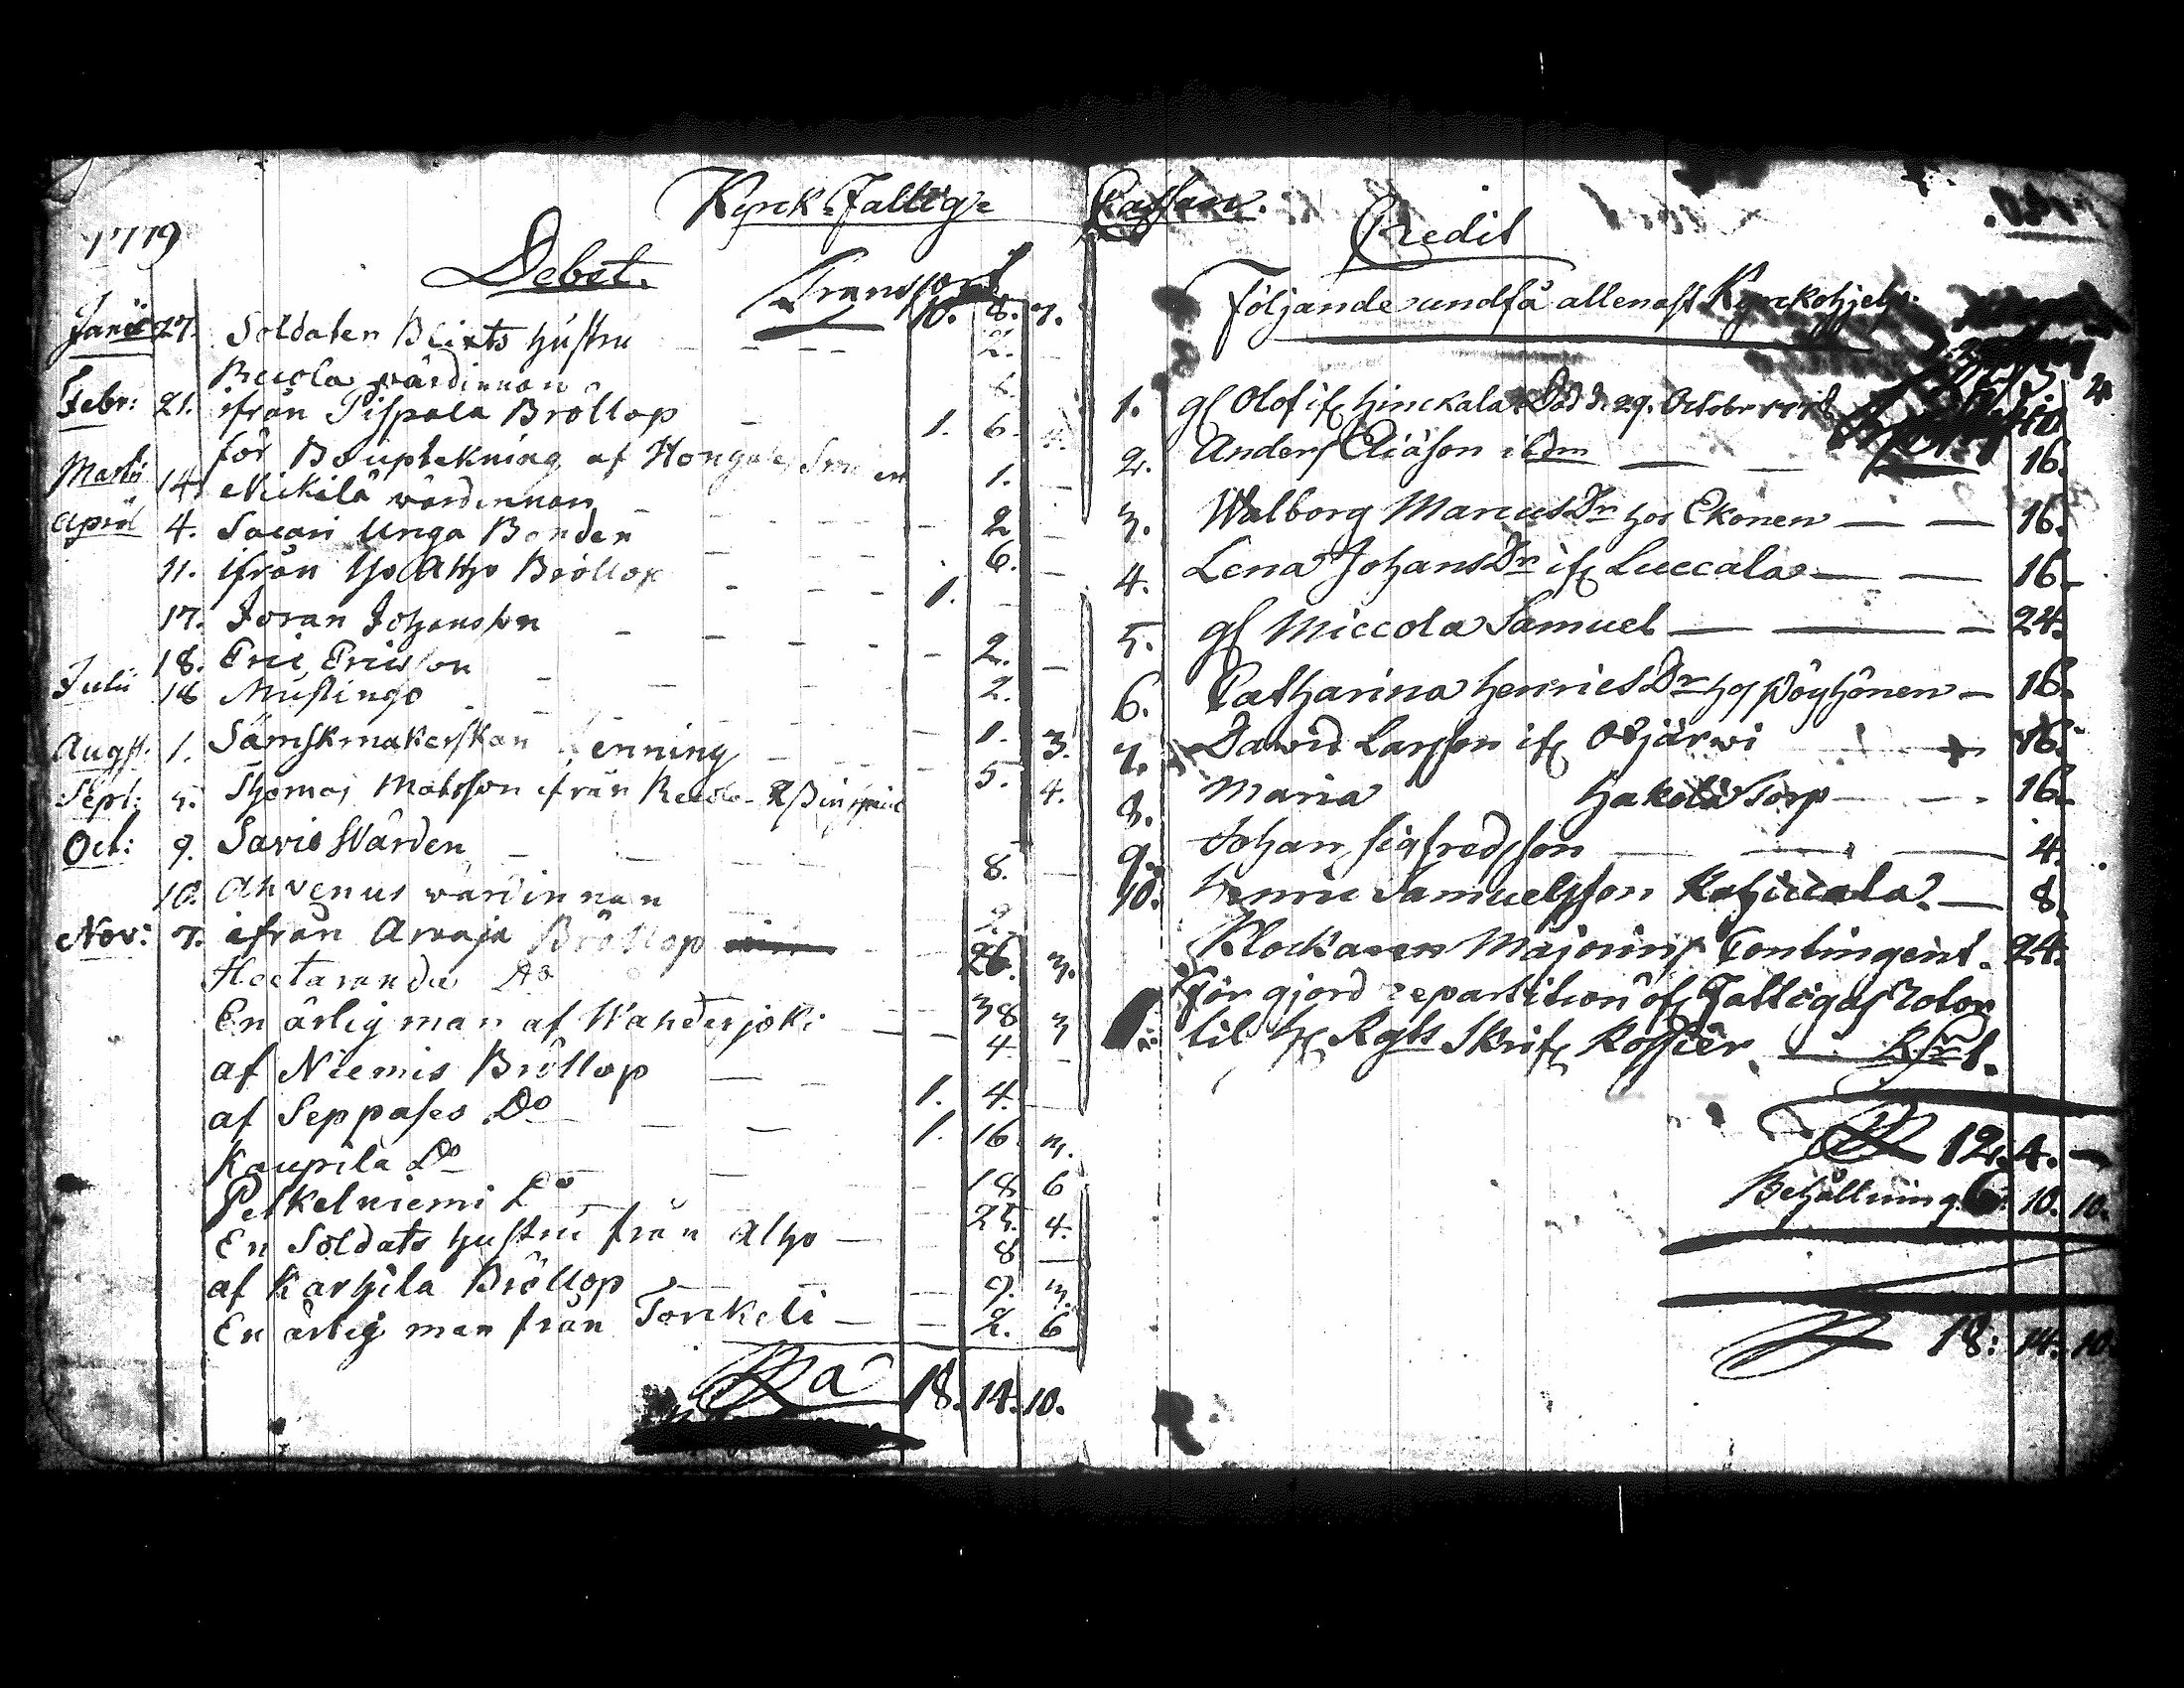 Kyrck-Fattig-Cassan.
1779
Debet. Transport 10. 8. 7.
27. Soldaten Blixts Hustru 2.
värdinnan
Febr: 21. ifrån Pispala Bröllop 1. 6.
för Bouptekning af 1.
Martii 14. Nickilä värdinnan 2
April 4. Sacari Unga Bonden 6.
11. ifrån Bröllop 1.
17. Joran Johansson 2.
18. Eric Ericsson 2.
Julii 18 Mustingo 1. 3.
Augst: 1. Sämskmakerskan 5. 4.
Sept: 5. Thomas Matsson ifrån
Oct: 9. Savio Wärden 8.
10. Ahvenus värdinnan 2.
Nov: 7. ifrån Arraja Bröllop 26. 3.
Hietaranda Do 38 3
En ärlig man af Wanderjoki 4
af Niemis Bröllop 1. 4.
af Seppäses Do 1. 16. 3.
Kaupila Do 18 6
Pelkelniemi Do 4.
En Soldats Hustru från Alho 8
af Karhila Bröllop 9. 3.
En ärlig man från Torckeli 2. 6
18. 14. 10.
Credit
Följande undfå allenast Kyrckohjelp.
1. gl Olof if Hinckala Död d. 29. Octobr
2. Anders Eliäson ibdm 16.
3. Walborg MarcusDr hos Ekonen 16.
4. Lena JohansDr if Luccala 16
5. gl Miccola Samuel 24.
6. Catharina HenricsDr hos Pöyhönen 16.
7. David Larsson if Ojärwi 16.
8. Maria Hakola Torp 16.
9. Johan Sigfredsson 4.
10. Henric Samuelsson 8.
Klockaren Majorins Contingent. 24.
För gjord repartition of Fattigas Rotor
til H Rgts Skrif 1.
12. 4.
Behållning 6. 10. 10.
18. 14. 10.